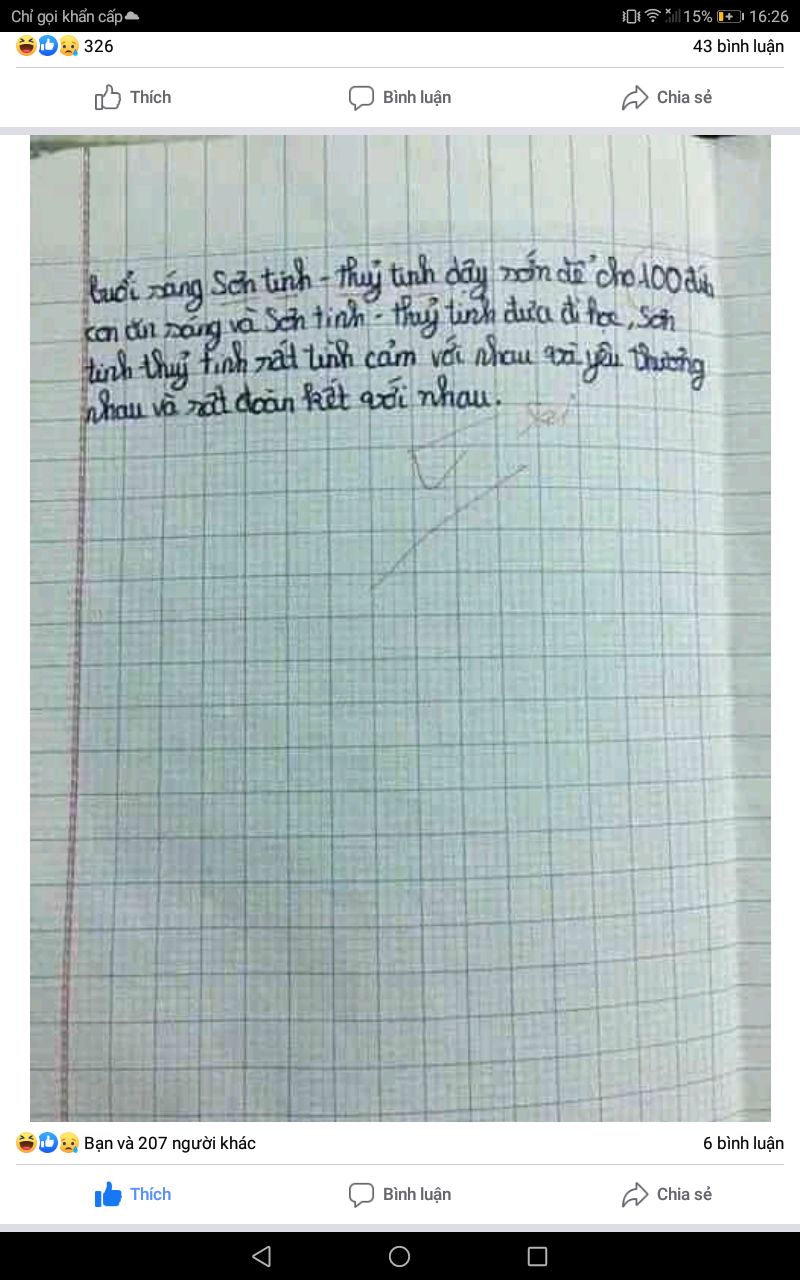 Chỉ gọi khẩn cấp 15% 16:26
326 43 bình luận
Thích Bình luận Chia sẻ
buổi sáng Sơn tinh - thuỷ tinh dây sớm để cho 100 đứa
con ăn sáng và Sơn tinh - thuỷ tinh đưa đi học, Sơn
tinh thuỷ tinh rất tình cảm với nhau và yêu thương
nhau và rất đoàn kết với nhau.
Bạn và 207 người khác 6 bình luận
Thích Bình luận Chia sẻ